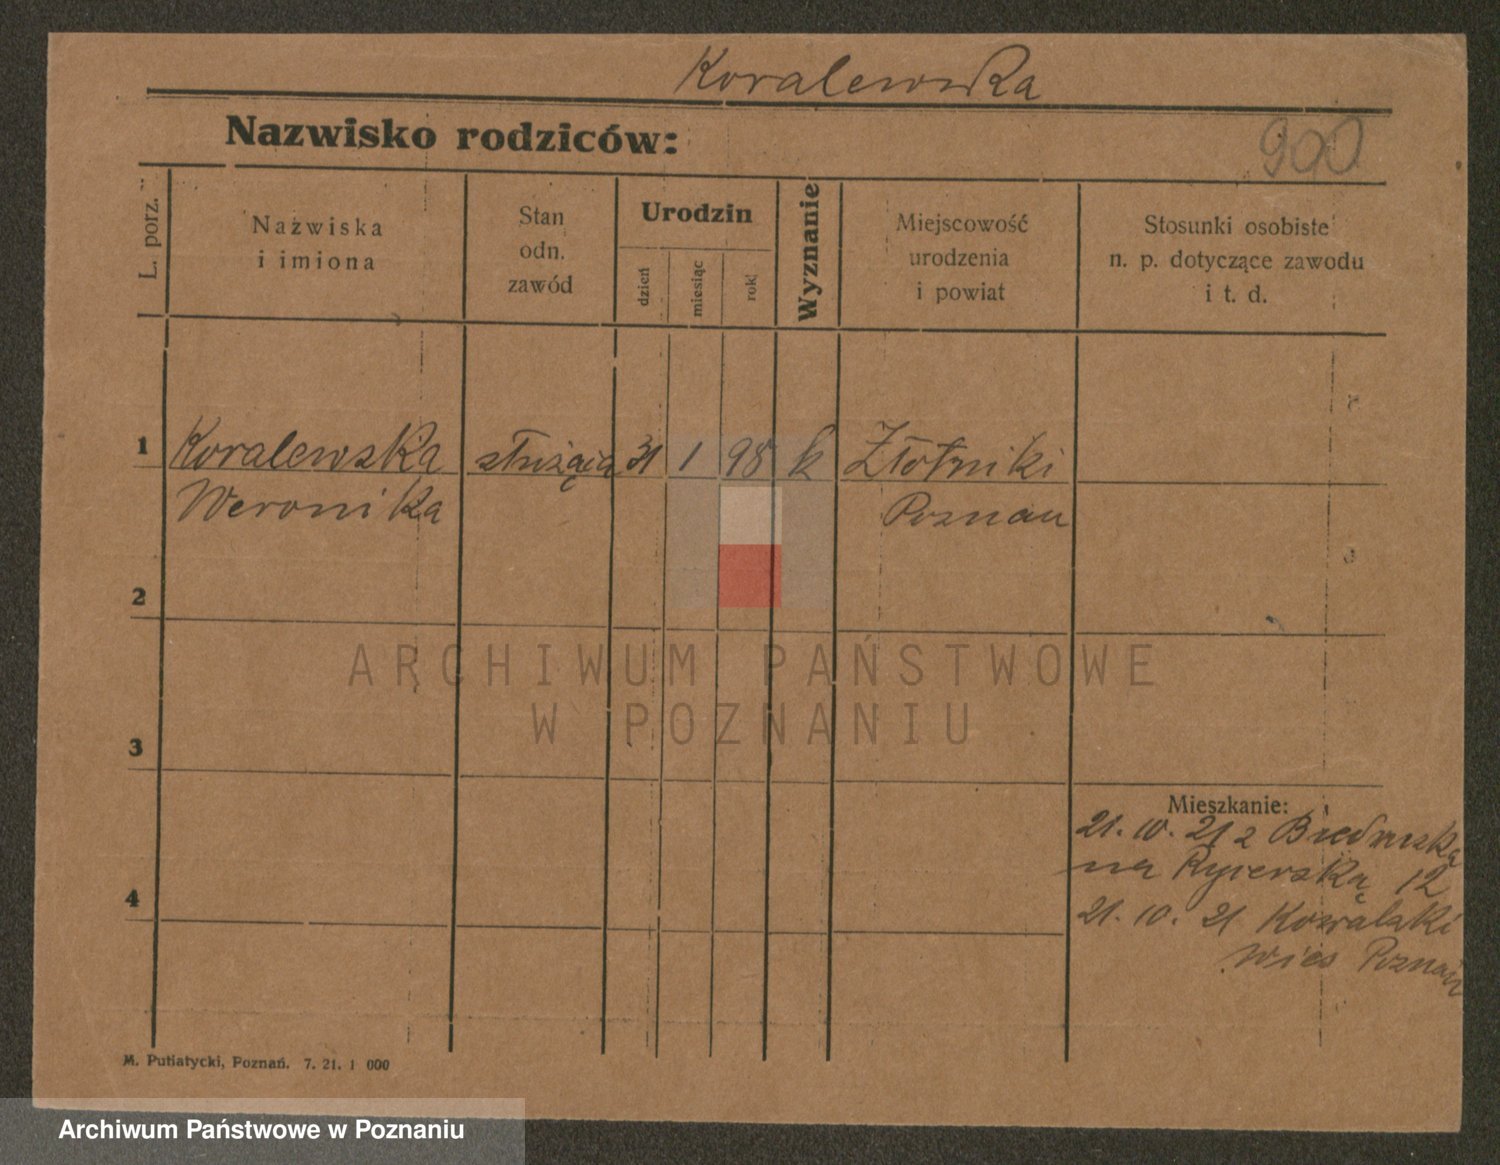 Koralewska
Nazwisko rodziców:
900
L. porz.
Nazwiska
i imiona
Stan
odn.
zawód
Urodzin
dzień
miesiąc
rok
Wyznanie
Miejscowość
urodzenia
i powiat
Stosunki osobiste
n. p. dotyczące zawodu
i t. d.
1 Koralewska służąca 31 1 98 k Złotniki
Weronika Poznań
2
3
4
Mieszkanie:
21. 10. 21 z
na Rycerską 12
21. 10. 21 Kowalski
wieś Poznań
M. Putiatycki, Poznań. 7. 21. 1 000
ARCHIWUM PAŃSTWOWE
W POZNANIU
Archiwum Państwowe w Poznaniu